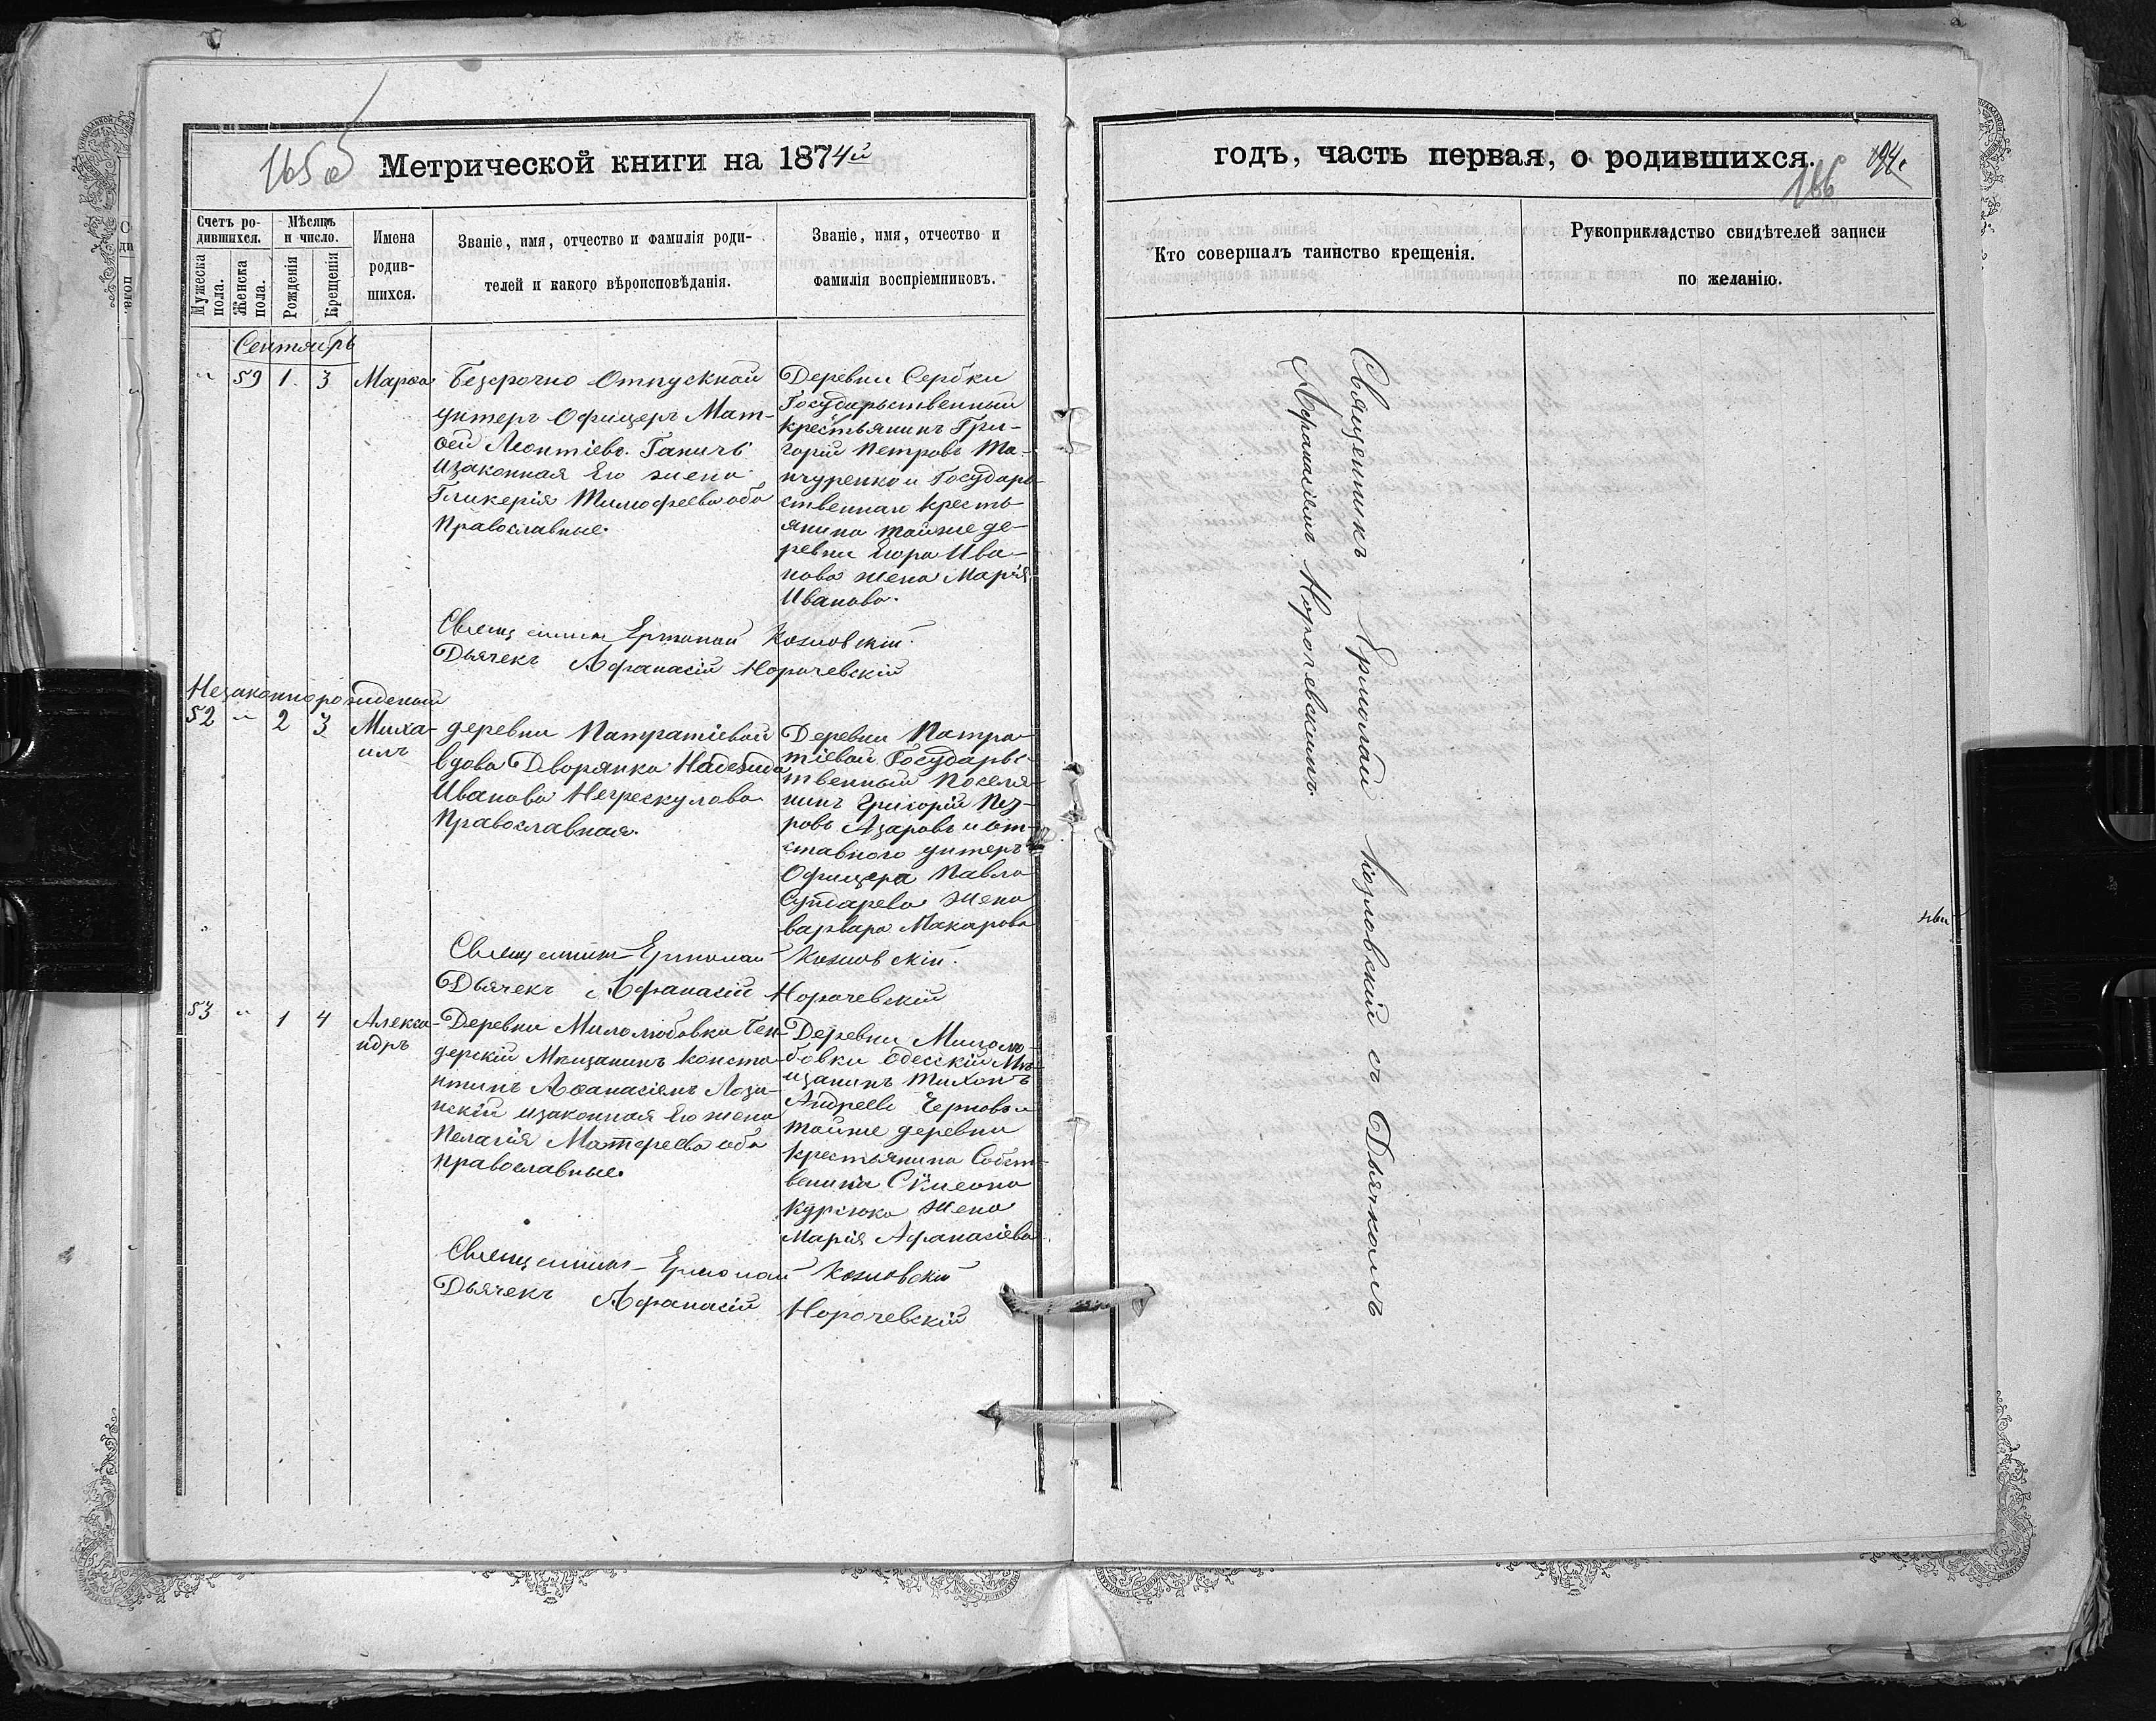 165 об
Метрической книги на 1874й
Счетъ ро-
дившихся.
Мѣсяцъ
и число.
Мужеска
пола.
Женска
пола.
Рожденія
Крещенія
Имена
родив-
шихся.
Званіе, имя, отчество и фамилія роди-
телей и какого вѣроисповѣданія.
Званіе, имя, отчество и
фамилія воспріемниковъ.
Сентябрь
" 59 1. 3 Марѳа
Безсрочно Отпускной
унтеръ Офицеръ Мат-
ѳей Леонтіевъ
изаконная Его жена
Гликерія Тимофеева оба
Православные.
Деревни Сербки
Государьственный
крестьянинъ Гри-
горій Петровъ Ма-
нчуренко и Государь-
ственнаи кресть-
янина тойже де-
ревни Іюра Ива-
нова жена Марія
Иванова.
Священникъ Ермолай Козловскій.
Дьячекъ Афанасій
Незаконнорожденый
52 " 2 3 Миха-
илъ
деревни Патратіевой
вдова Дворянка Надежда
Иванова Негрескулова
Православная.
Деревни Патра-
тіевой Государьс-
твенный Поселя-
нинъ Григорій Пет-
ровъ Азаровъ и от-
ставного унтеръ
Офицера Павла
жена
варвара Макарова
Священникъ Ермолай Козловскій.
Дьячекъ Афанасій
53 " 1 4 Алекса-
ндръ
Деревни Миломобовки Бен-
дерскій Мещанинъ Конста-
нтинъ Аѳанасіевъ Лози-
нскій изаконная Его жена
Пелагія Матфеева оба
православные.
Деревни
бовки Одесскій Мѣ-
щанинъ Тихонъ
Андреевъ Черновъ и
тойже деревни
крестьянина Собст-
веника Симеона
Курсюка жена
Марія Афанасіева.
Священникъ Ермолай Козловскій
Дьячекъ Афанасій
годъ, часть первая, о родившихся.
194.
166
Кто совершалъ таинство крещенія.
Рукоприкладство свидѣтелей записи
по желанію.
Священникъ Ермолай Козловскій съ Дьячкомъ
Афанасіемъ